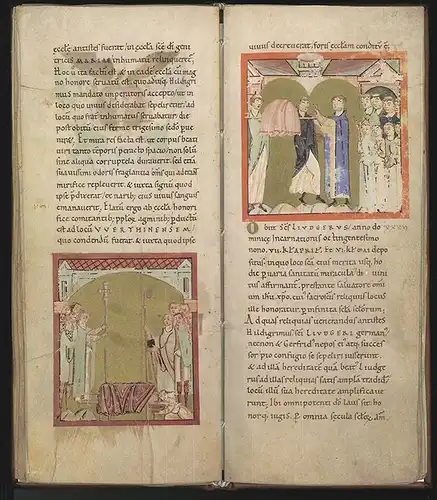 eccle antistes fuerat, in eccla sce di geni
tricis MARIAE inhumatu relinqueret.
Hoc ita factu est, & in eade eccla cu mag
no honore seruatu est, quo adusq; Hildigri
mus mandato imperatoris accepto, ut in
loco quo uiuus desiderabat sepeliretur, ad
locu quo frat inhumatus seruabatur, die
post obitu eius ferme trigesimo scdo pue
nire. Et mira res facta est, ut corpus beati
uiri tanto teporis peracto spacio, non solu
sine aliqua corruptela durauerit, sed etia
suauissimi odoris fraglantia oms qui aderant
mirifice repleuerit, & iuxta signu quod
ipse pdixerat, et narib; eius uiuus sanguis
emanauerit. Elatu ergo ab eccla honori
fice comitantib; pploz agminib; pductu
est ad locu VVERTHINENSEM,
quo condendu fuerat, & iuxta quod ipse
uiuus decreuerat, foris ecclam conditu e.
Obiit Scs LIUDGERUS, anno do
minice incarnationis octingentesimo
nono. VII. KL APRIL. Et VI. KL mai depo
situs, in quo loco sca eius merita usq; ho
die p uaria sanitatu miracula di uini
tus affirmant, prestante saluatore omi
um ihu xpo, cui sacrosci reliquiis locus
ille honoratur, p infinita scla scloru.
Ad quas reliquias uenerandus antistes
Hildigrimus, sci LIUDGERI german
necnon & Gerfrid nepos ei atq; succes
sor pio confugio se sepeliri iusserunt,
& ad illa hereditate qua beat Liudger
us ad illas reliquias satis ampla tradidit
locu illu sua hereditate amplificaue
runt. Ibi omnipotenti do laus sit, ho
norq; iugis. P omnia secula scloz. am